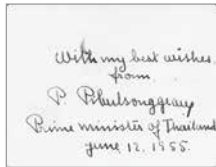 With my best wishes.
from
P. Pibulsonggram
Prime minister of Thailand
June 12, 1955.